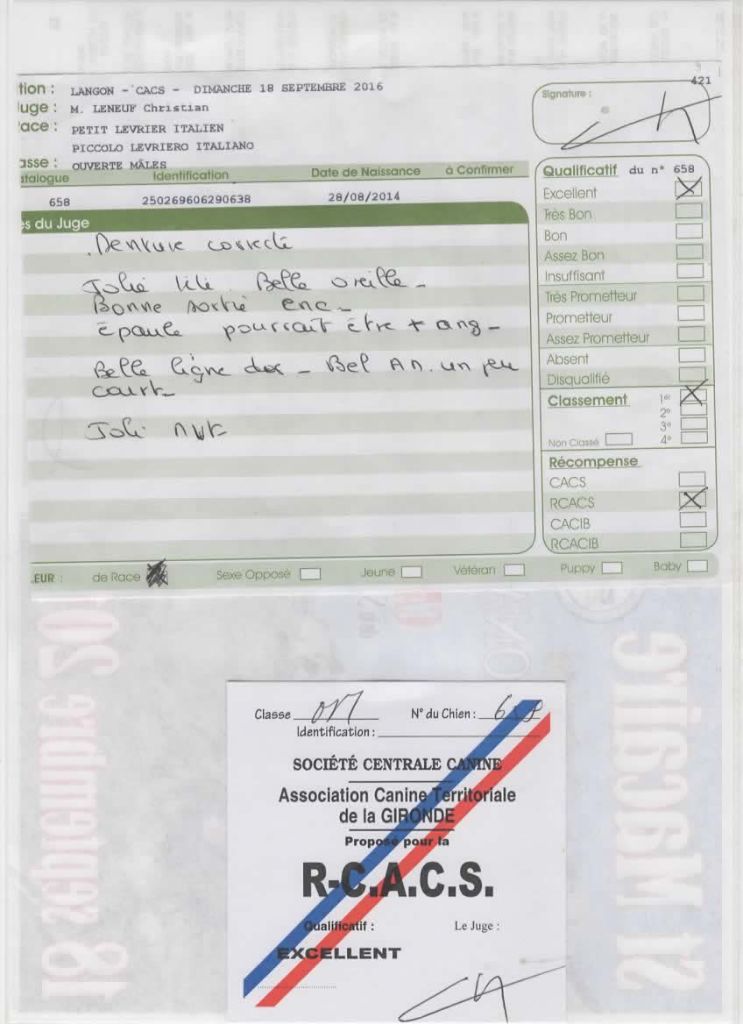 421
tion : LANGON - CACS - DIMANCHE 18 SEPTEMBRE 2016
uge : M. LENEUF Christian
ace : PETIT LEVRIER ITALIEN
PICCOLO LEVRIERO ITALIANO
asse : OUVERTE MÂLES
Signature :
atalogue Identification Date de Naissance à Confirmer
658 250269606290638 28/08/2014
es du Juge
Denture correcte
Jolie tête. Belle oreille -
Bonne sortie enc -
épaule pourrait être + ang -
Belle ligne dos - Bel An. un peu
court -
Joli
Qualificatif du n° 658
Excellent
Très Bon
Bon
Assez Bon
Insuffisant
Très Prometteur
Prometteur
Assez Prometteur
Absent
Disqualifié
Classement 1er
2e
3e
Non Classé 4e
Récompense
CACS
RCACS
CACIB
RCACIB
.EUR : de Race Sexe Opposé Jeune Vétéran Puppy Baby
Classe OM N° du Chien : 658
Identification :
SOCIÉTÉ CENTRALE CANINE
Association Canine Territoriale
de la GIRONDE
Proposé pour la
R-C.A.C.S.
Qualificatif : Le Juge :
EXCELLENT
18 septembre 20
ST MACAIRE